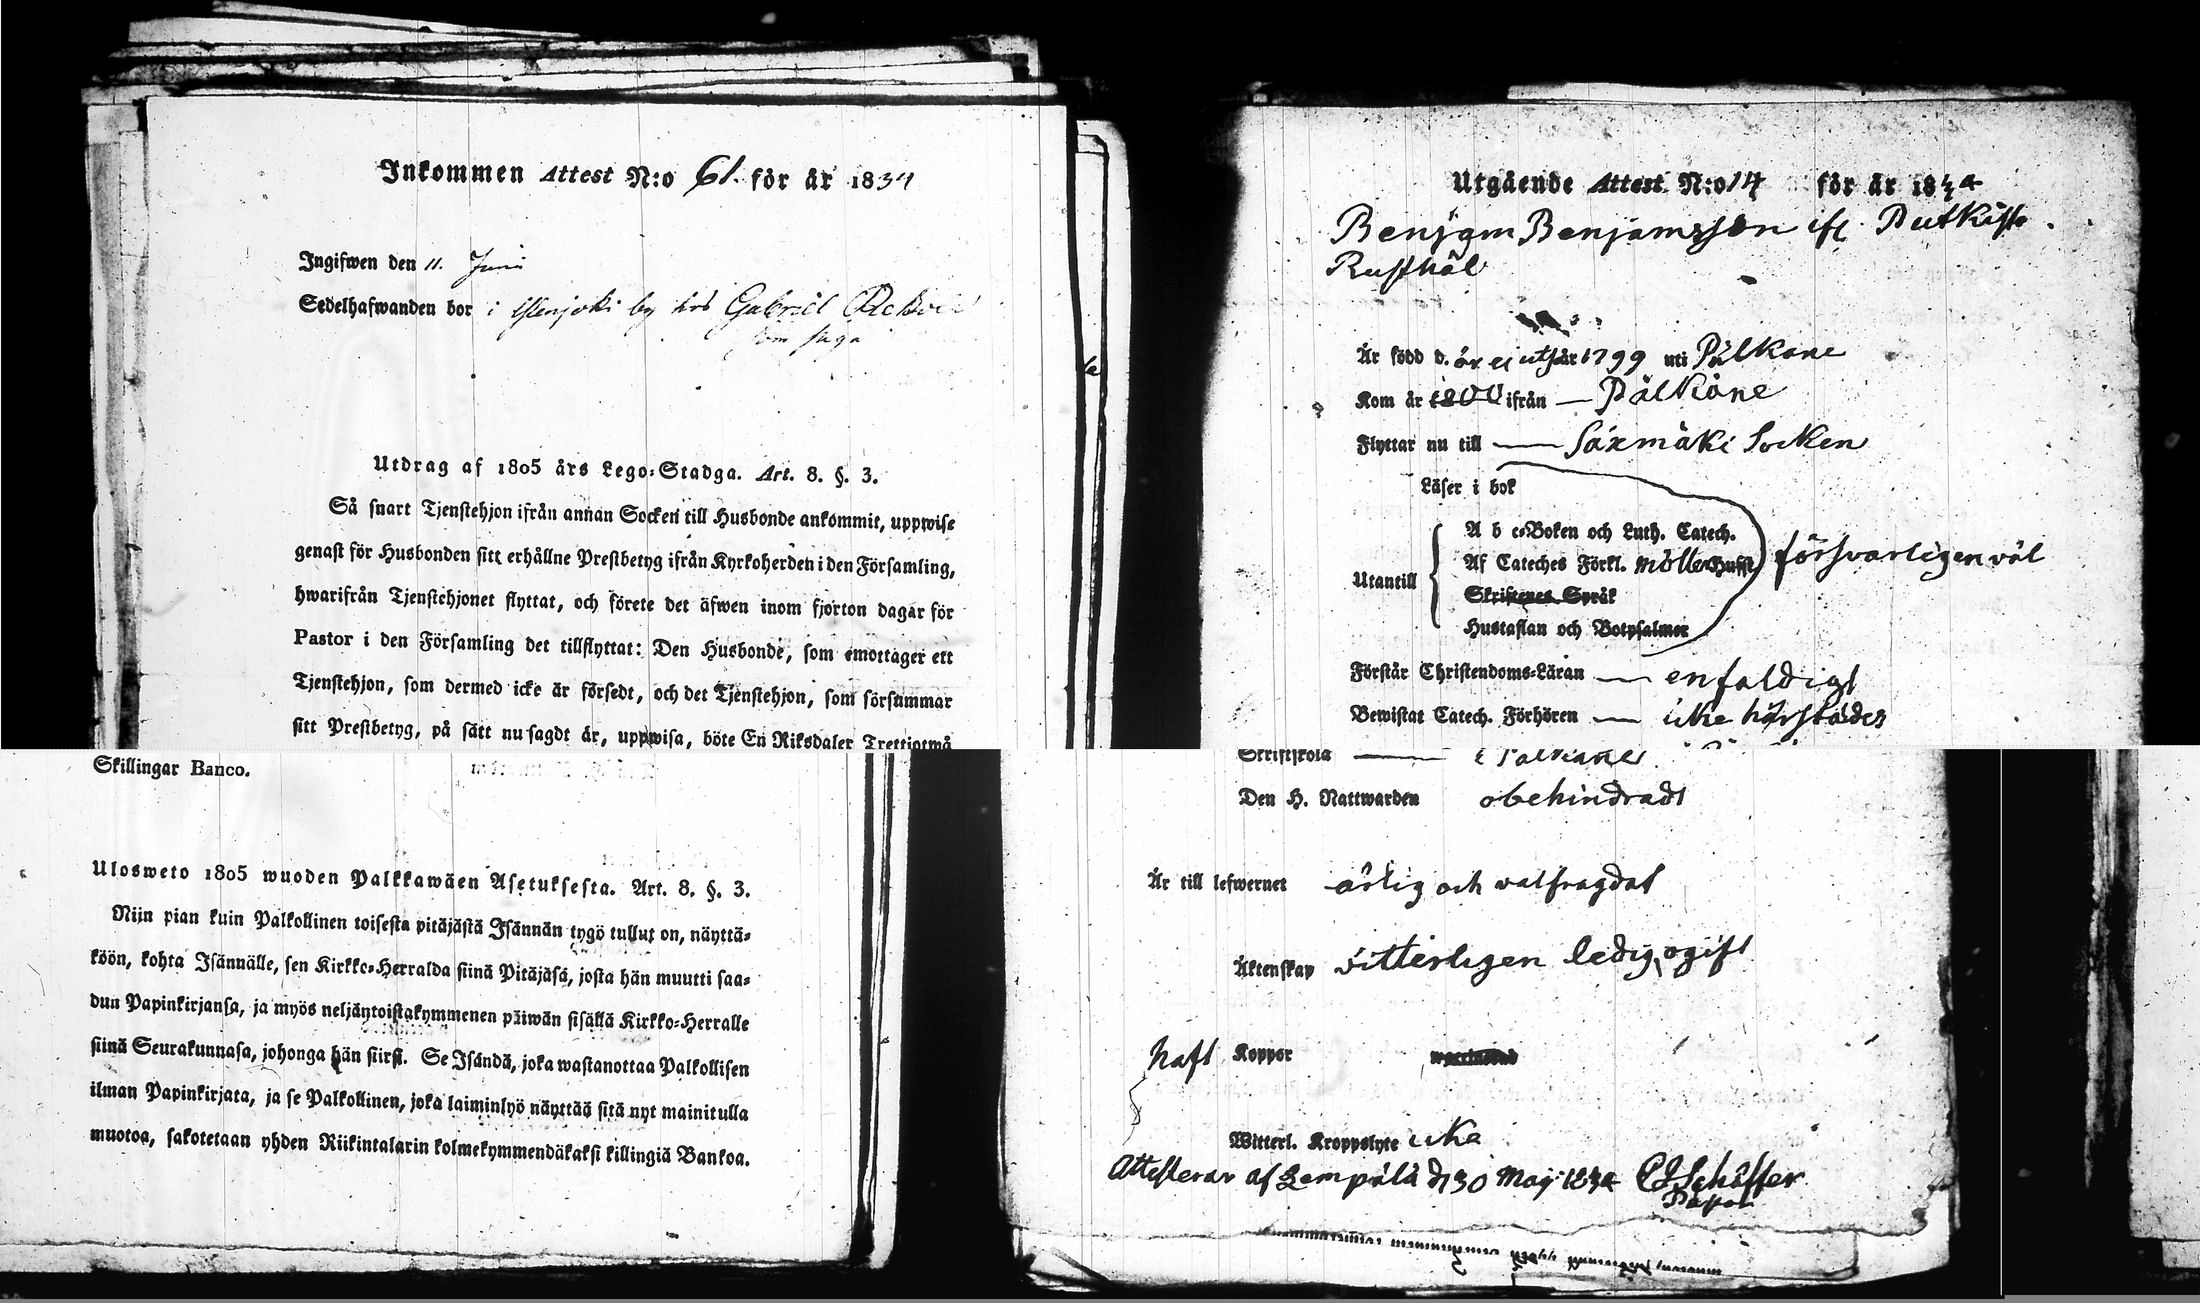 Inkommen Attest N:o 61. för år 1834
Ingifwen den 11. Juni
Sedelhafwanden bor i by hos Gabriel
som
Utdrag af 1805 års Lego-Stadga. Art. 8. §. 3.
Så snart Tjenstehjon ifrån annan Socken till Husbonde ankommit, uppwise
genast för Husbonden sitt erhållne Prestbetyg ifrån Kyrkoherden i den Församling,
hwarifrån Tjenstehjonet flyttat, och förete det äfwen inom fjorton dagar för
Pastor i den Församling det tillflyttat: Den Husbonde, som emottager ett
Tjenstehjon, som dermed icke är försedt, och det Tjenstehjon, som försummar
sitt Prestbetyg, på sätt nu sagdt är, uppwisa, böte En Riksdaler Trettiotwå
Skillingar Banco.
Ulosweto 1805 wuoden Palkkawäen Asetuksesta. Art. 8. §. 3.
Nijn pian kuin Palkollinen toisesta pitäjästä Isännän tygö tullut on, näyttä-
köön, kohta Isännälle, sen Kirkko-Herralda siinä Pitäjäsä, josta hän muutti saa-
dun Papinkirjansa, ja myös neljäntoistakymmenen päiwän sisällä Kirkko-Herralle
siinä Seurakunnasa, johonga hän siirsi. Se Isändä, joka wastanottaa Palkollisen
ilman Papinkirjata, ja se Palkollinen, joka laiminlyö näyttää sitä nyt mainitulla
muotoa, sakotetaan yhden Riikintalarin kolmekymmendäkaksi killingiä Bankoa.
Utgående Attest N:o 14 för år 1834
Benjam Benjamsson
Rusthål
Är född d. är ej år 1799 uti Pälkäne
Kom år 1800 ifrån — Pälkäne
Flyttar nu till — Säxmäki Socken
Läser i bok
A b c-Boken och Luth. Catech.
Af Cateches Förkl. försvarligen väl
Utantill
Skriftenes Språk
Hustaflan och Botpsalmer
Förstår Christendoms-Läran — enfaldigt
Bewistat Catech. Förhören — icke härstädes
Skriftskola — i Pälkäne
Den H. Nattwarden obehindradt
Är till lefwernet ärlig och välfrägdat
Äktenskap vitterligen ledig, ogift
haft Koppor vaccinerad
Witterl. Kroppslyte icke
Attesterar af Lempälä d 30 Maj 1834 Schäffer
Pastor